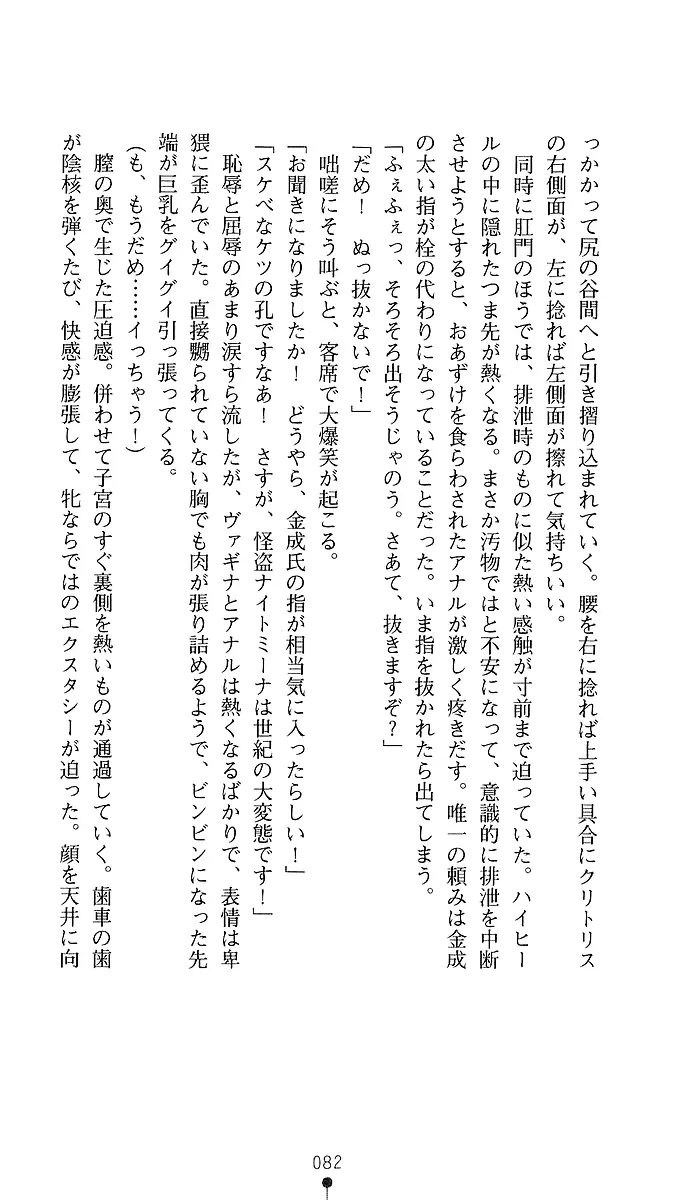 っかかって尻の谷間へと引き摺り込まれていく。腰を右に捻れば上手い具合にクリトリス
の右側面が、左に捻れば左側面が擦れて気持ちいい。
　同時に肛門のほうでは、排泄時のものに似た熱い感触が寸前まで迫っていた。ハイヒー
ルの中に隠れたつま先が熱くなる。まさか汚物ではと不安になって、意識的に排泄を中断
させようとすると、おあずけを食らわされたアナルが激しく疼きだす。唯一の頼みは金成
の太い指が栓の代わりになっていることだった。いま指を抜かれたら出てしまう。
「ふぇふぇっ、そろそろ出そうじゃのう。さあて、抜きますぞ？」
「だめ！　ぬっ抜かないで！」
　咄嗟にそう叫ぶと、客席で大爆笑が起こる。
「お聞きになりましたか！　どうやら、金成氏の指が相当気に入ったらしい！」
「スケベなケツの孔ですなあ！　さすが、怪盗ナイトミーナは世紀の大変態です！」
　恥辱と屈辱のあまり涙すら流したが、ヴァギナとアナルは熱くなるばかりで、表情は卑
猥に歪んでいた。直接嬲られていない胸でも肉が張り詰めるようで、ビンビンになった先
端が巨乳をグイグイ引っ張ってくる。
（も、もうだめ……イっちゃう！）
　膣の奥で生じた圧迫感。併わせて子宮のすぐ裏側を熱いものが通過していく。歯車の歯
が陰核を弾くたび、快感が膨張して、牝ならではのエクスタシーが迫った。顔を天井に向
082